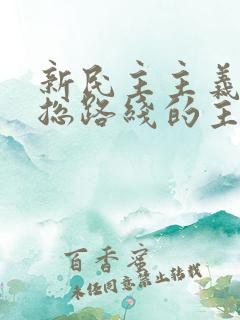 新民主主义
总路线的主
百香蜜
未经同意禁止转载